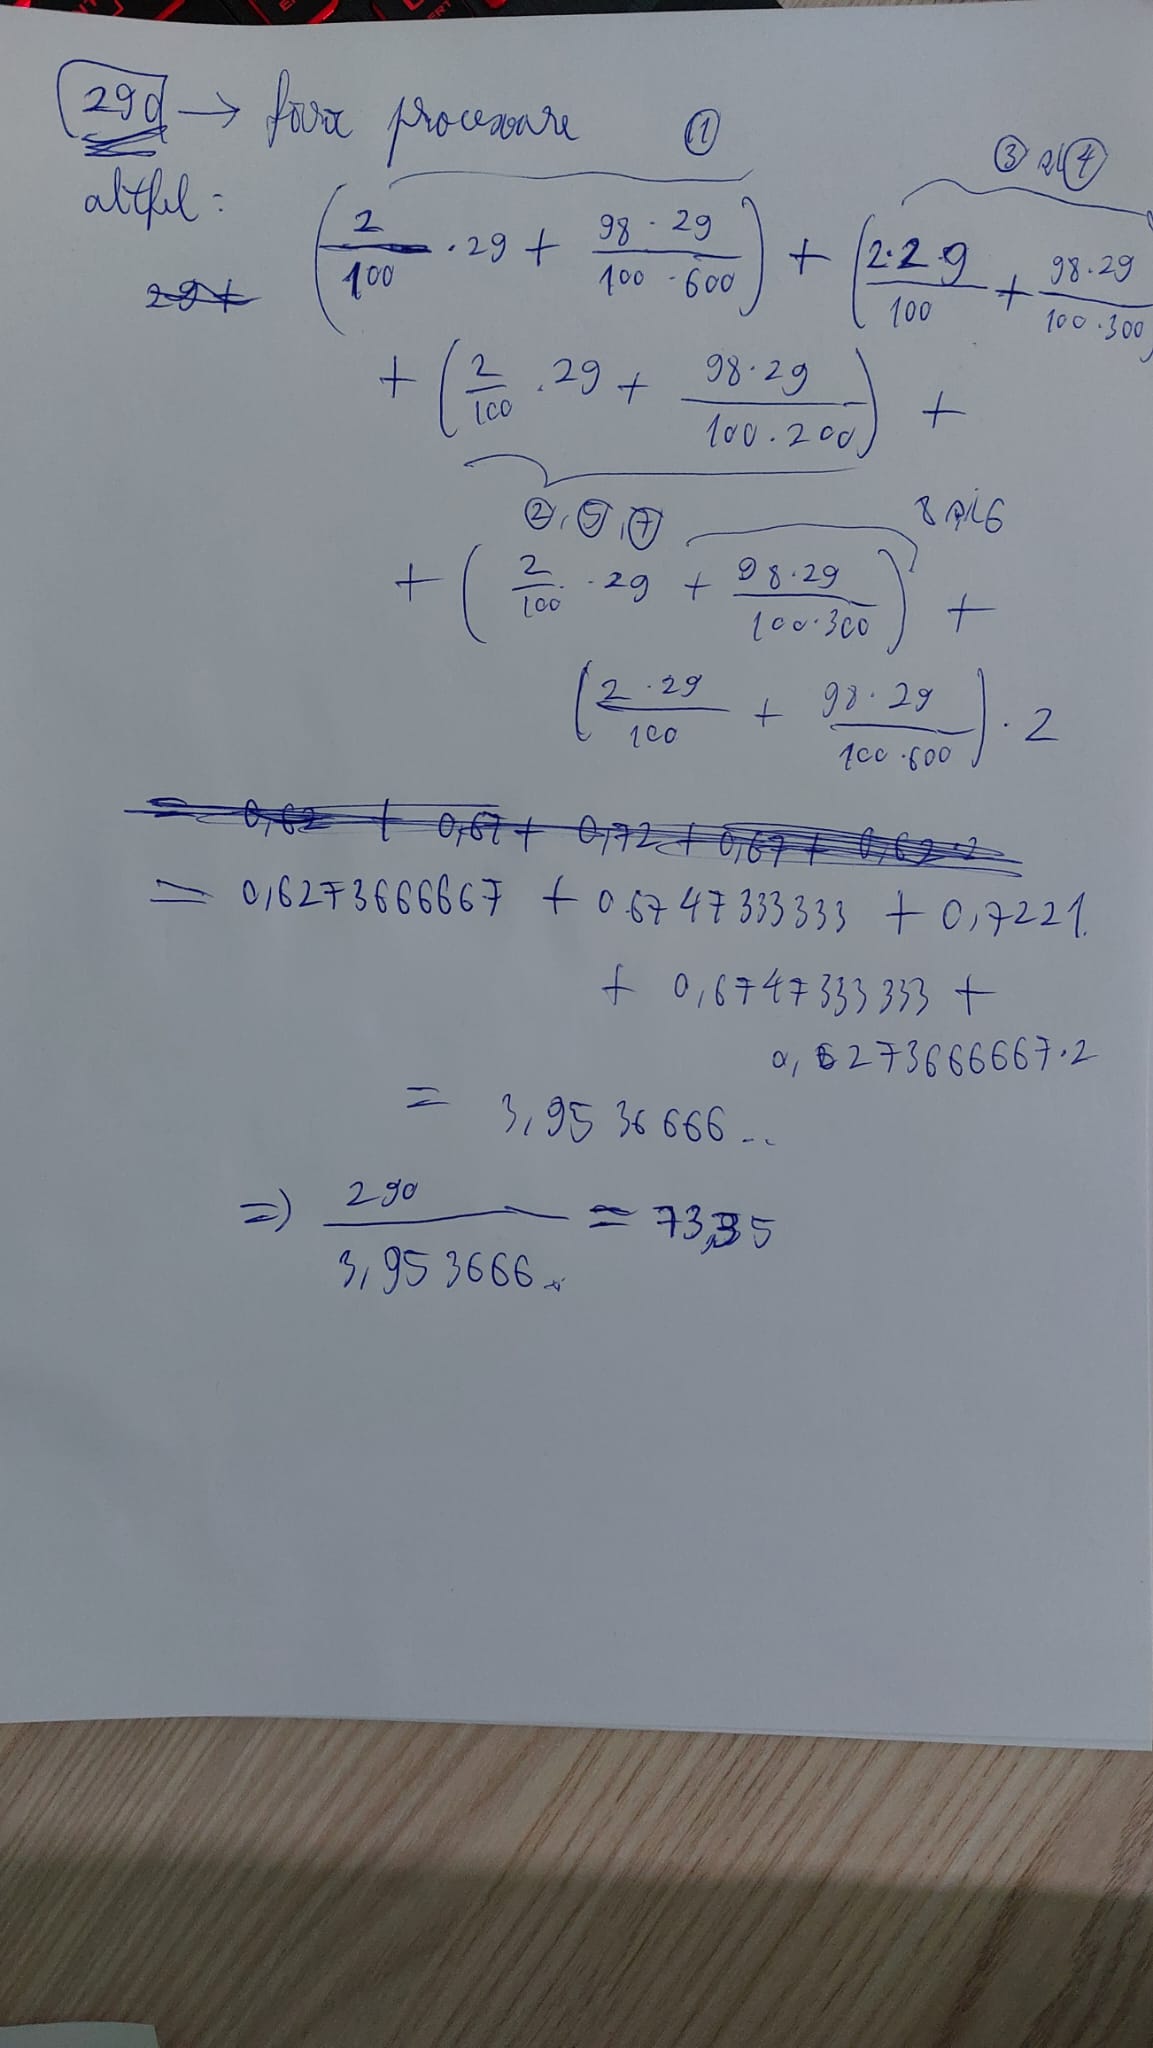 290 → fără procesare ①
③ și ④
altfel: (2/100 · 29 + 98 · 29/100 · 600) + (2·29/100 + 98·29/100·300
29+
+ (2/100 · 29 + 98·29/100·200) +
②, ⑤, ⑦ 8 și 6
+ (2/100 · 29 + 98·29/100·300) +
(2·29/100 + 98·29/100·600) · 2
= 0,62 + 0,67 + 0,72 + 0,67 + 0,62·2
= 0,6273666667 + 0.6747333333 + 0,7221
+ 0,6747333333 +
0,6273666667·2
= 3,9536666..
=) 290/3,953666.. = 73,35